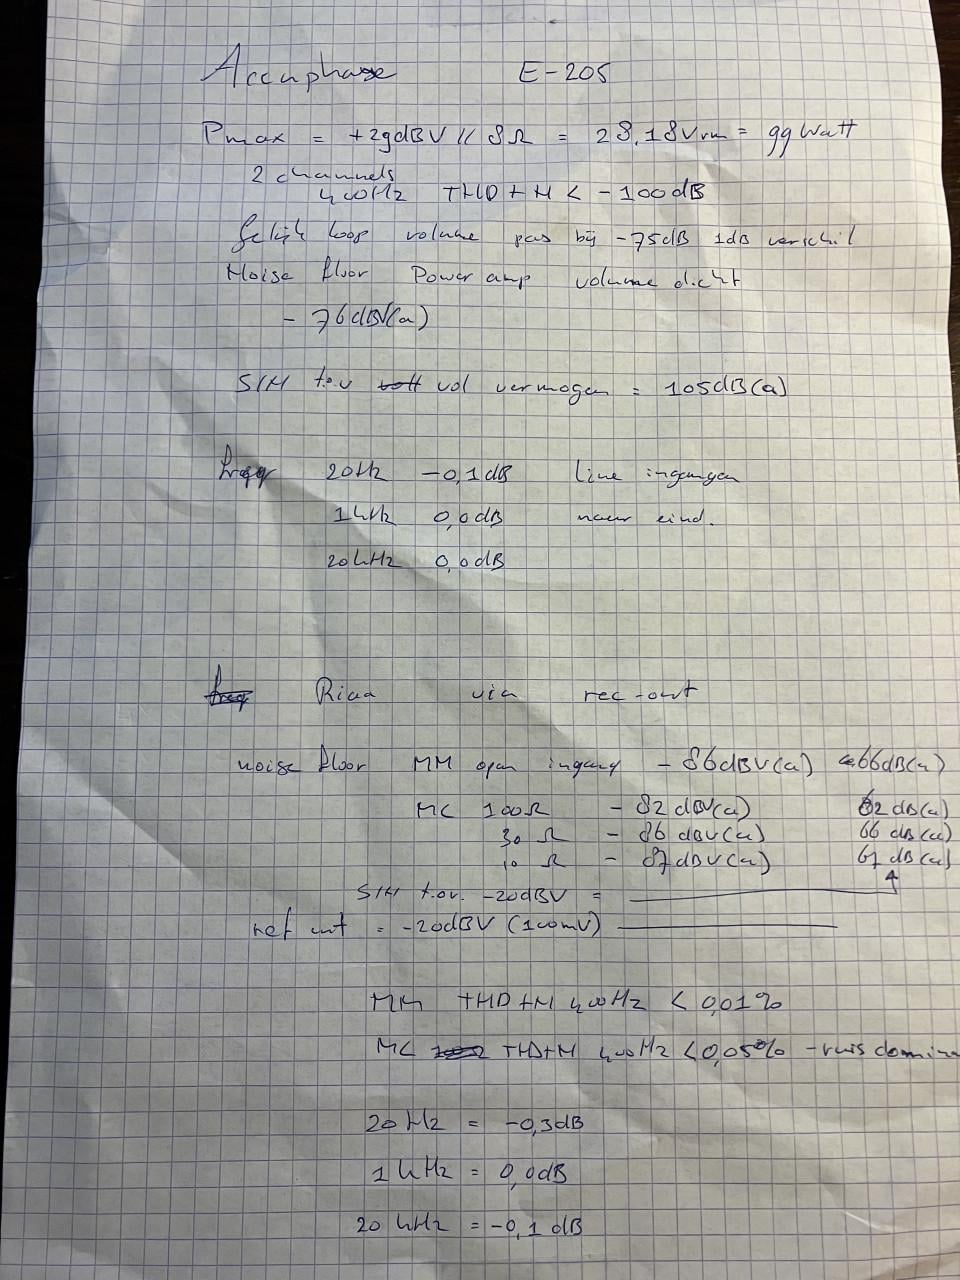 Accuphase E-205
Pmax = +29dBV // 8Ω = 28,18Vrm = 99 Watt
2 channels
400Hz THD+N < -100dB
Gelijk loop volume pas bij -75dB 1dB verschil
Noise floor Power amp volume dicht
- 76dBV(a)
S/N t.o.v vol vermogen = 105dB(a)
freq 20Hz -0,1dB Line ingangen
1kHz 0,0dB naar eind.
20kHz 0,0dB
Riaa via rec-out
noise floor MM open ingang - 86dBV(a) 66dB(a)
MC 100Ω - 82dBV(a) 62dB(a)
30Ω - 86dBV(a) 66dB(a)
10Ω - 87dBV(a) 67dB(a)
S/N t.o.v. -20dBV =
ref uit = -20dBV (100mV)
MM THD+N 400Hz < 0,01%
MC THD+N 400Hz < 0,05% - ruis domina
20Hz = -0,3dB
1kHz = 0,0dB
20kHz = -0,1dB